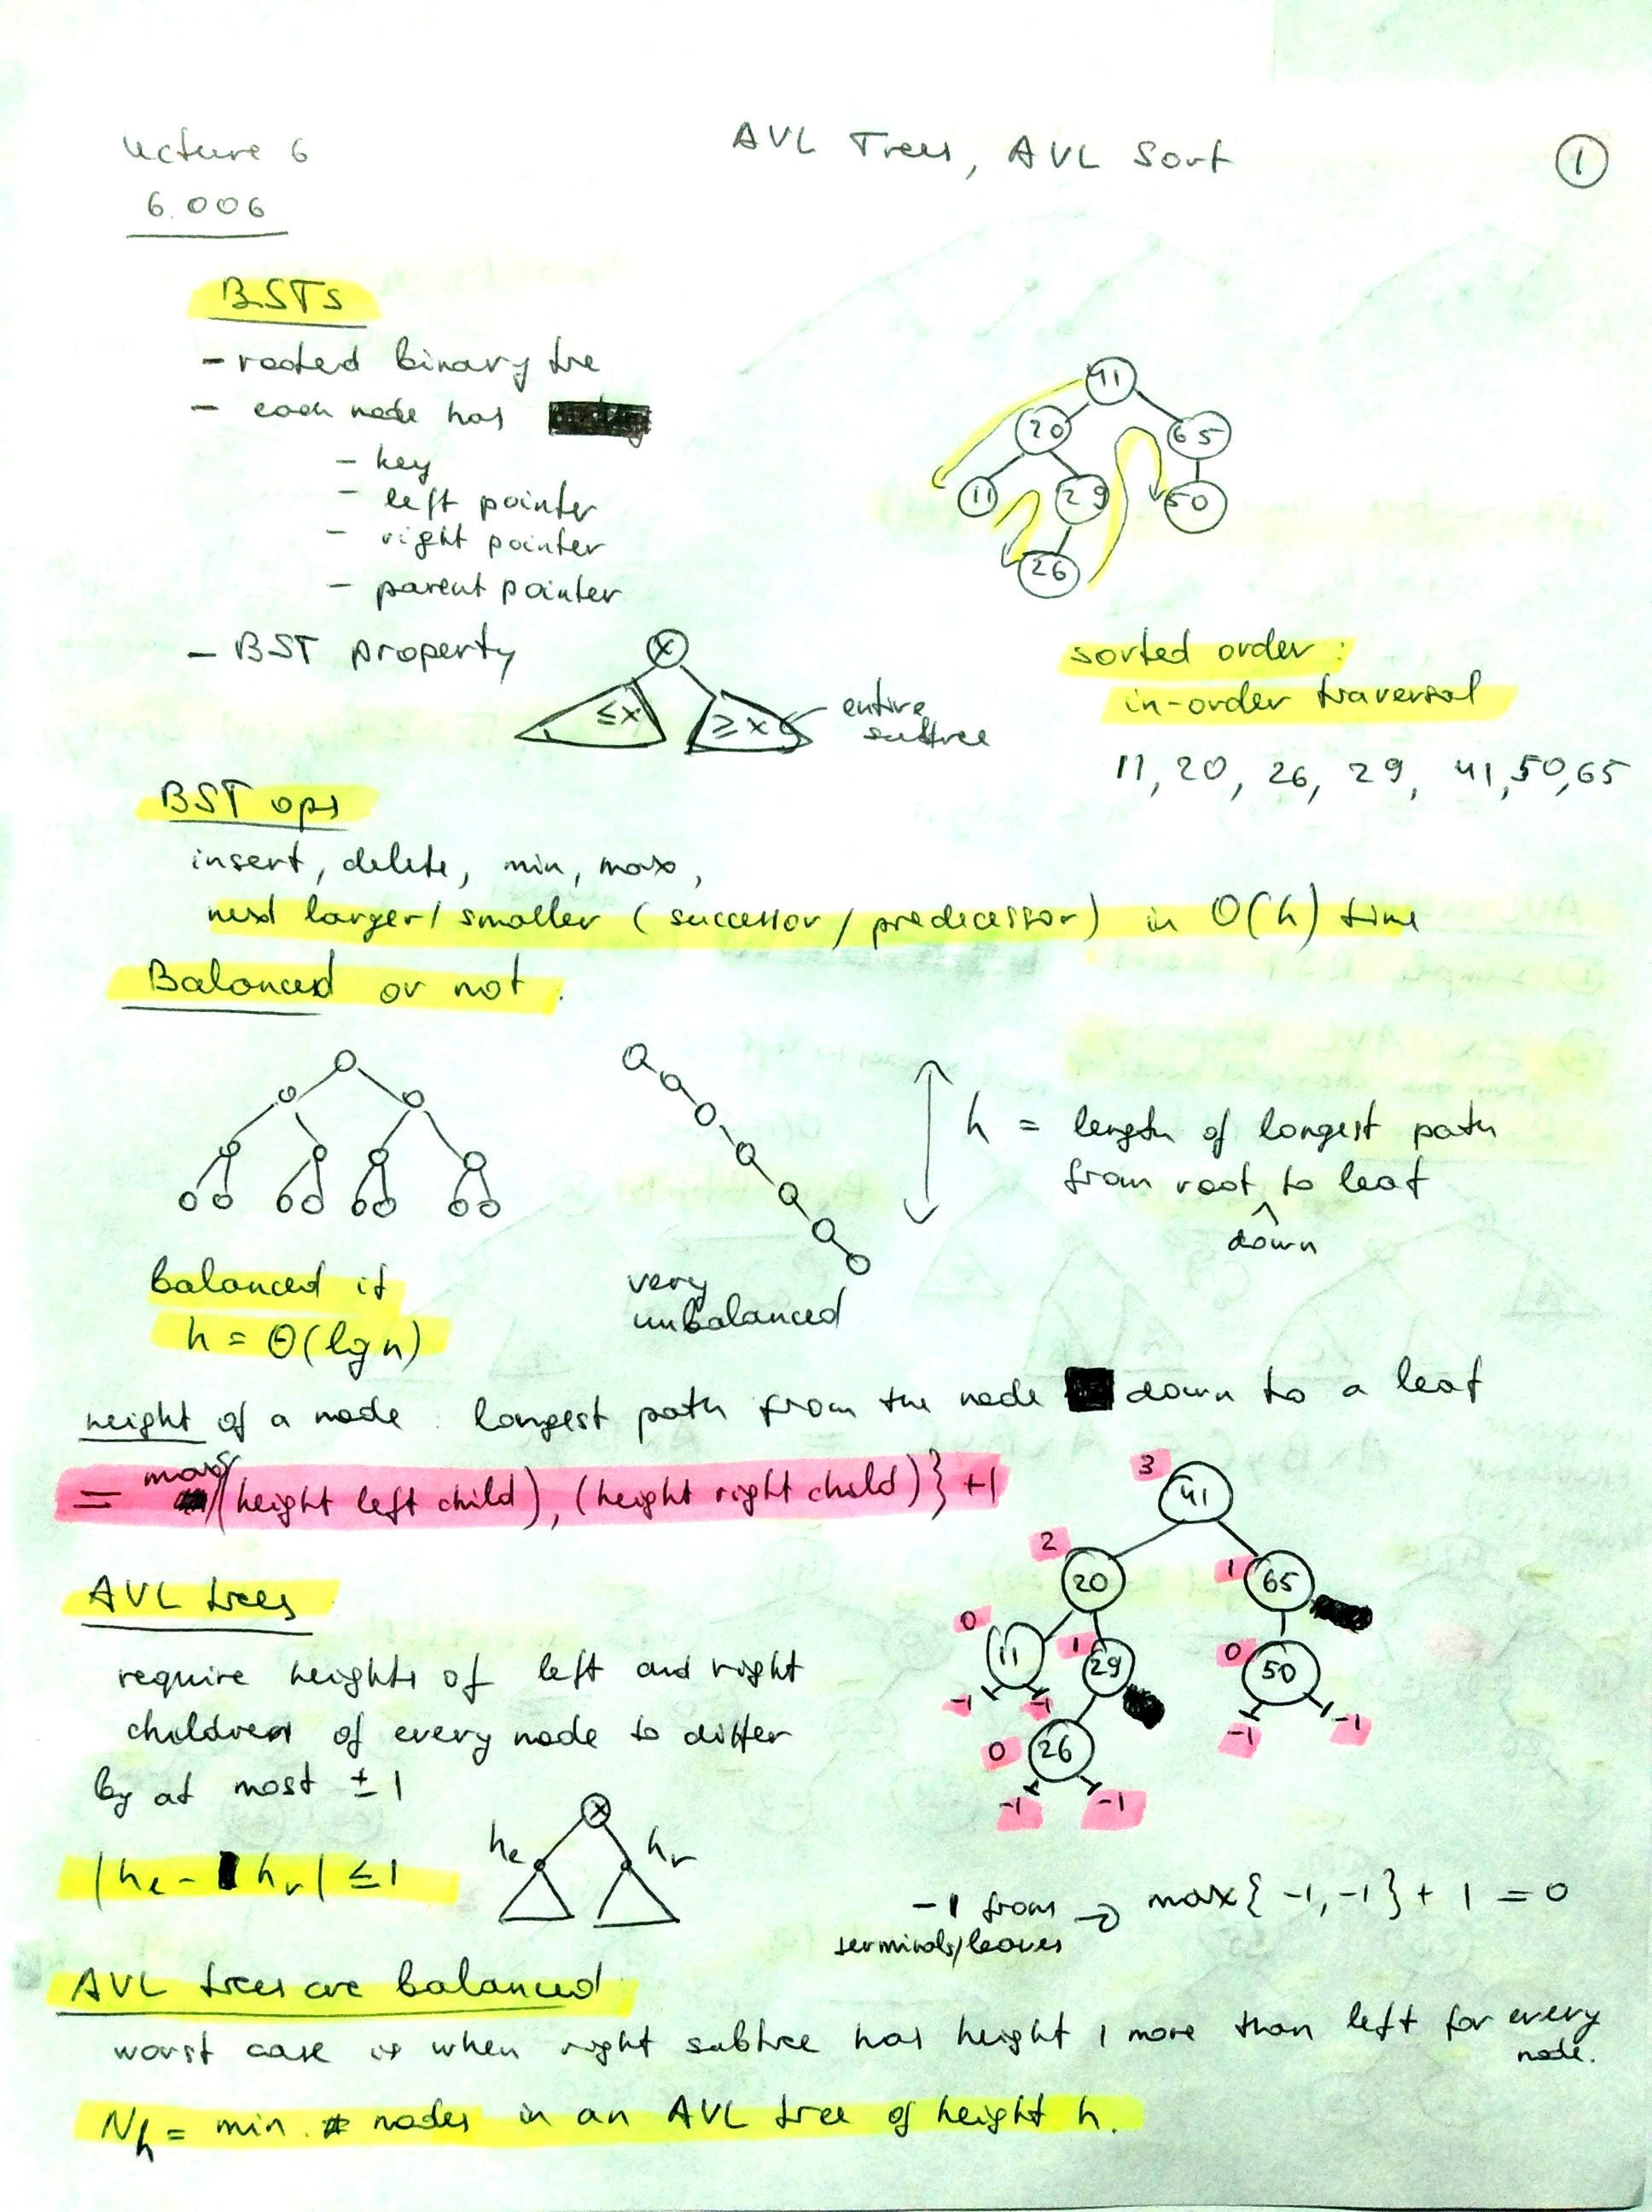 Lecture 6
6.006
AVL Trees, AVL Sort
1
BSTs
- rooted binary tre
- each node has
- key
- left pointer
- right pointer
- parent pointer
- BST property
x
≤x
≥x
entire
subtree
41
20
65
11
29
50
26
sorted order:
in-order traversal
11, 20, 26, 29, 41, 50, 65
BST ops
insert, delete, min, max,
next larger/smaller (successor/predecessor) in O(h) time
Balanced or not.
h = length of longest path
from root to leaf
down
balanced if
h = Θ(lg n)
very
unbalanced
height of a node: longest path from the node down to a leaf
= max{(height left child), (height right child)} +1
3
41
2
20
1
65
0
11
1
29
0
50
-1
-1
0
26
-1
-1
-1
-1
AVL trees
require heights of left and right
children of every node to differ
by at most ±1
x
hℓ
hr
|hℓ - hr| ≤ 1
-1 from
terminals/leaves
→ max{-1,-1} + 1 = 0
AVL trees are balanced
worst case is when right subtree has height 1 more than left for every
node.
Nh = min. # nodes in an AVL tree of height h.